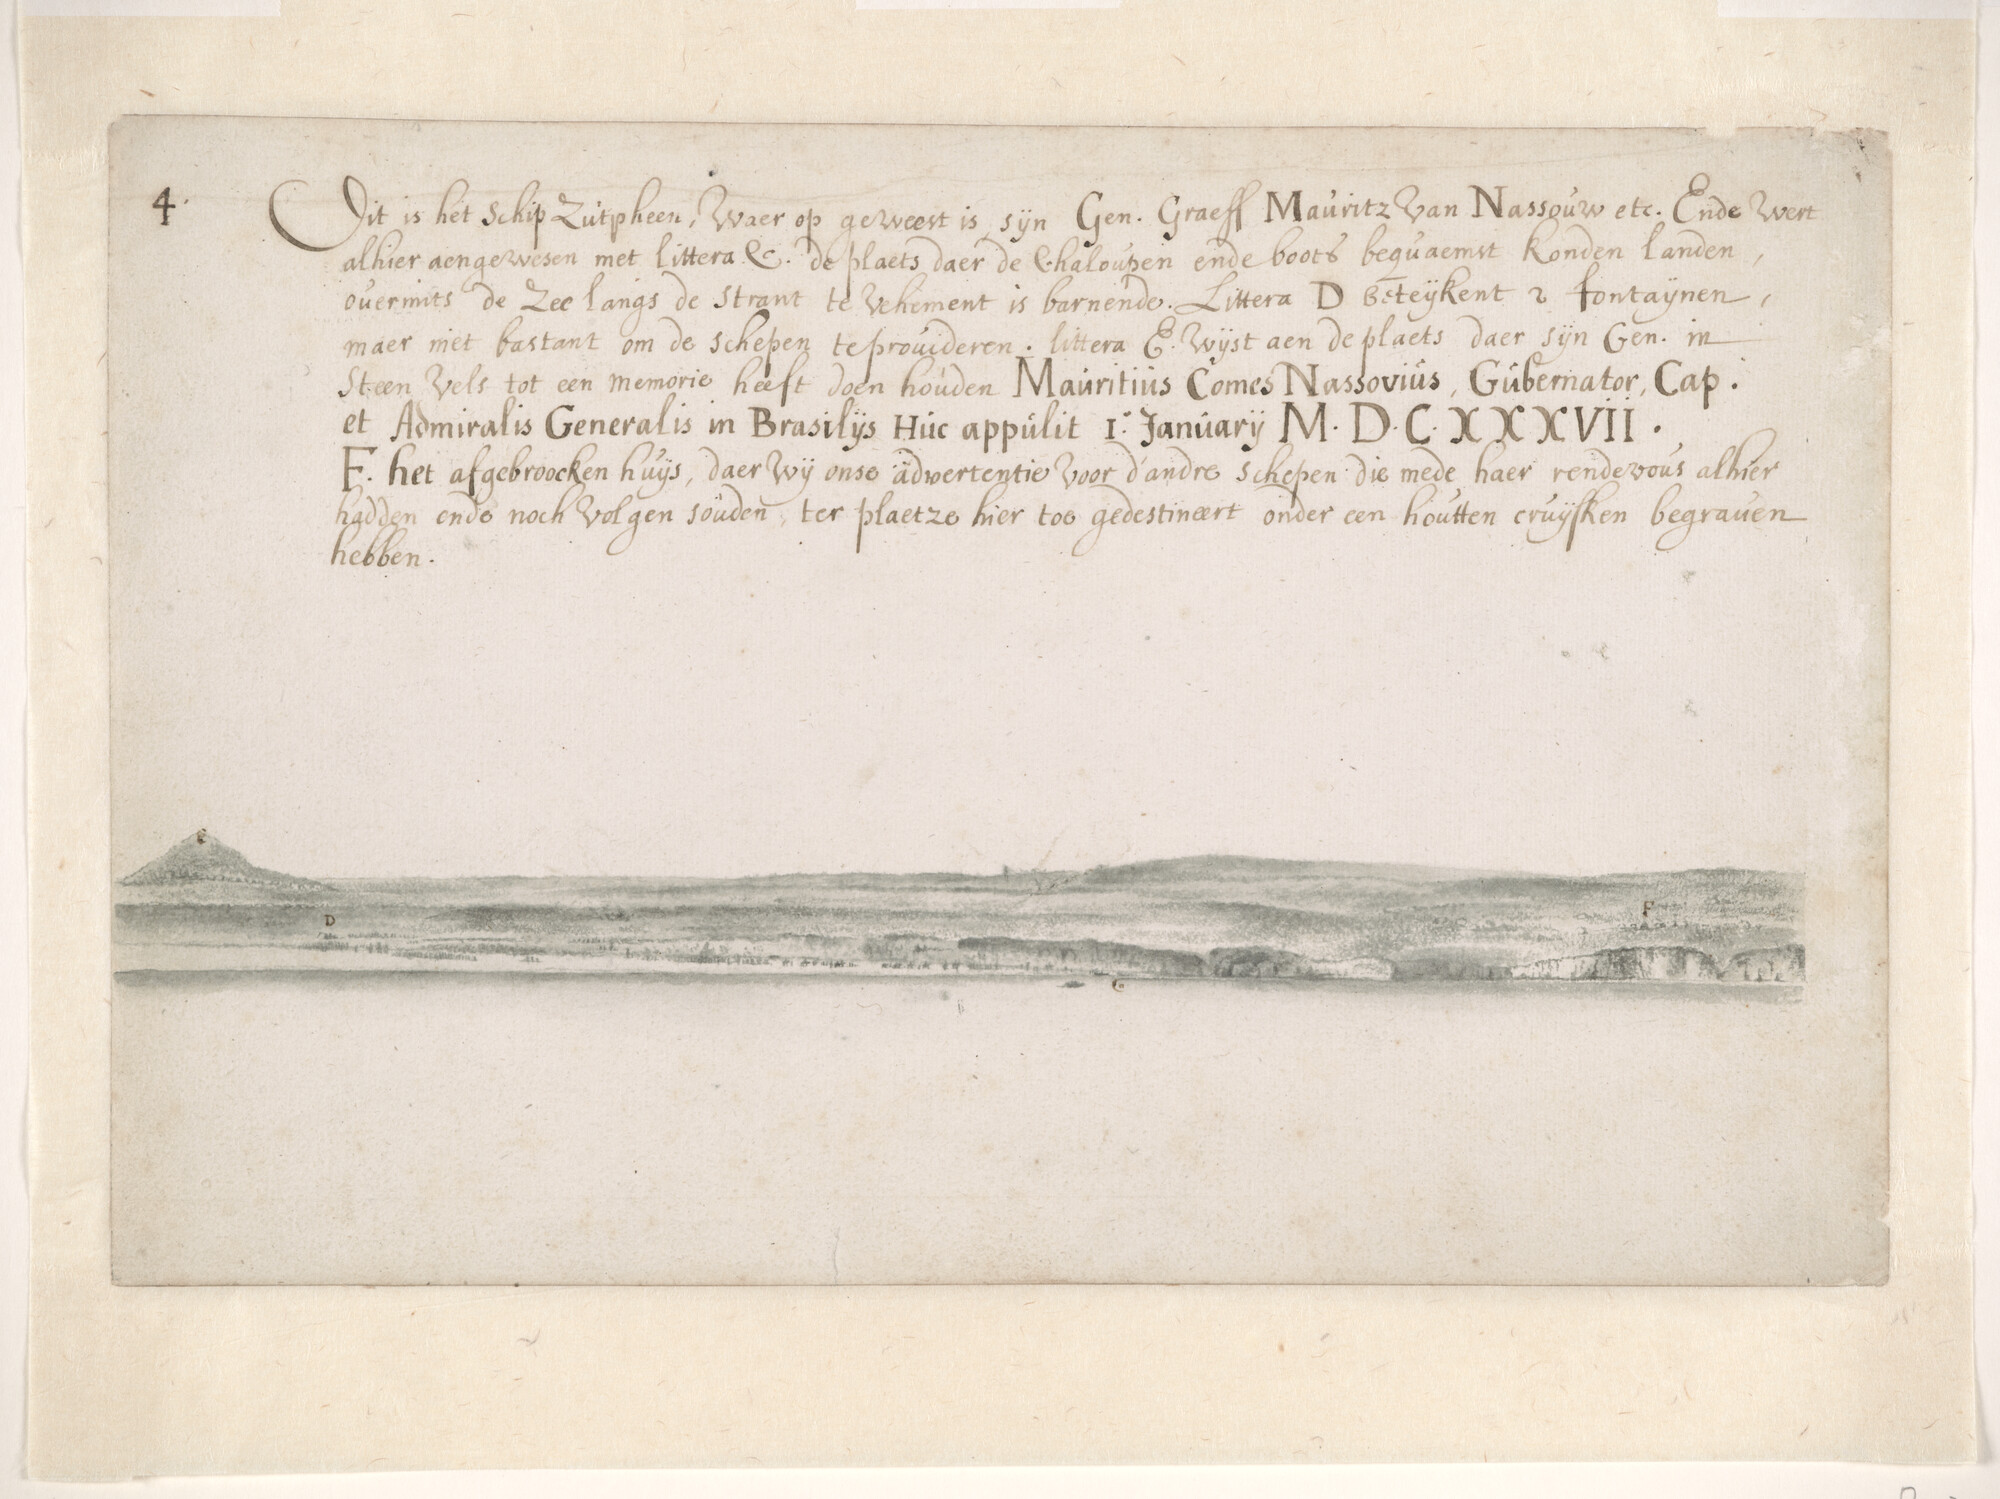 4.
Dit is het Schip Zutpheen, Waer op geweest is, sijn Gen. Graeff Mauritz Van Nassouw etc. Ende Wert
alhier aengewesen met littera C. de plaets daer de Chaloupen ende boots bequaemst konden landen,
overmits de Zee langs de Strant te Vehement is barnende. Littera D beteijkent 2 fontaijnen,
maer niet bastant om de schepen te provideren. littera E. Wijst aen de plaets daer sijn Gen. in
Steen Vels tot een memorie heeft doen houden Mauritius Comes Nassovius, Gubernator, Cap.
et Admiralis Generalis in Brasilijs Huc appulit 1. Januarij M.D.C.XXXVII.
F. het afgebroocken huijs, daer Wij onse advertentie Voor d'andre Schepen die mede haer rendevous alhier
hadden ende noch Volgen souden, ter plaetze hier toe gedestineert onder een houtten cruijsken begraven
hebben.
E
D
F
C